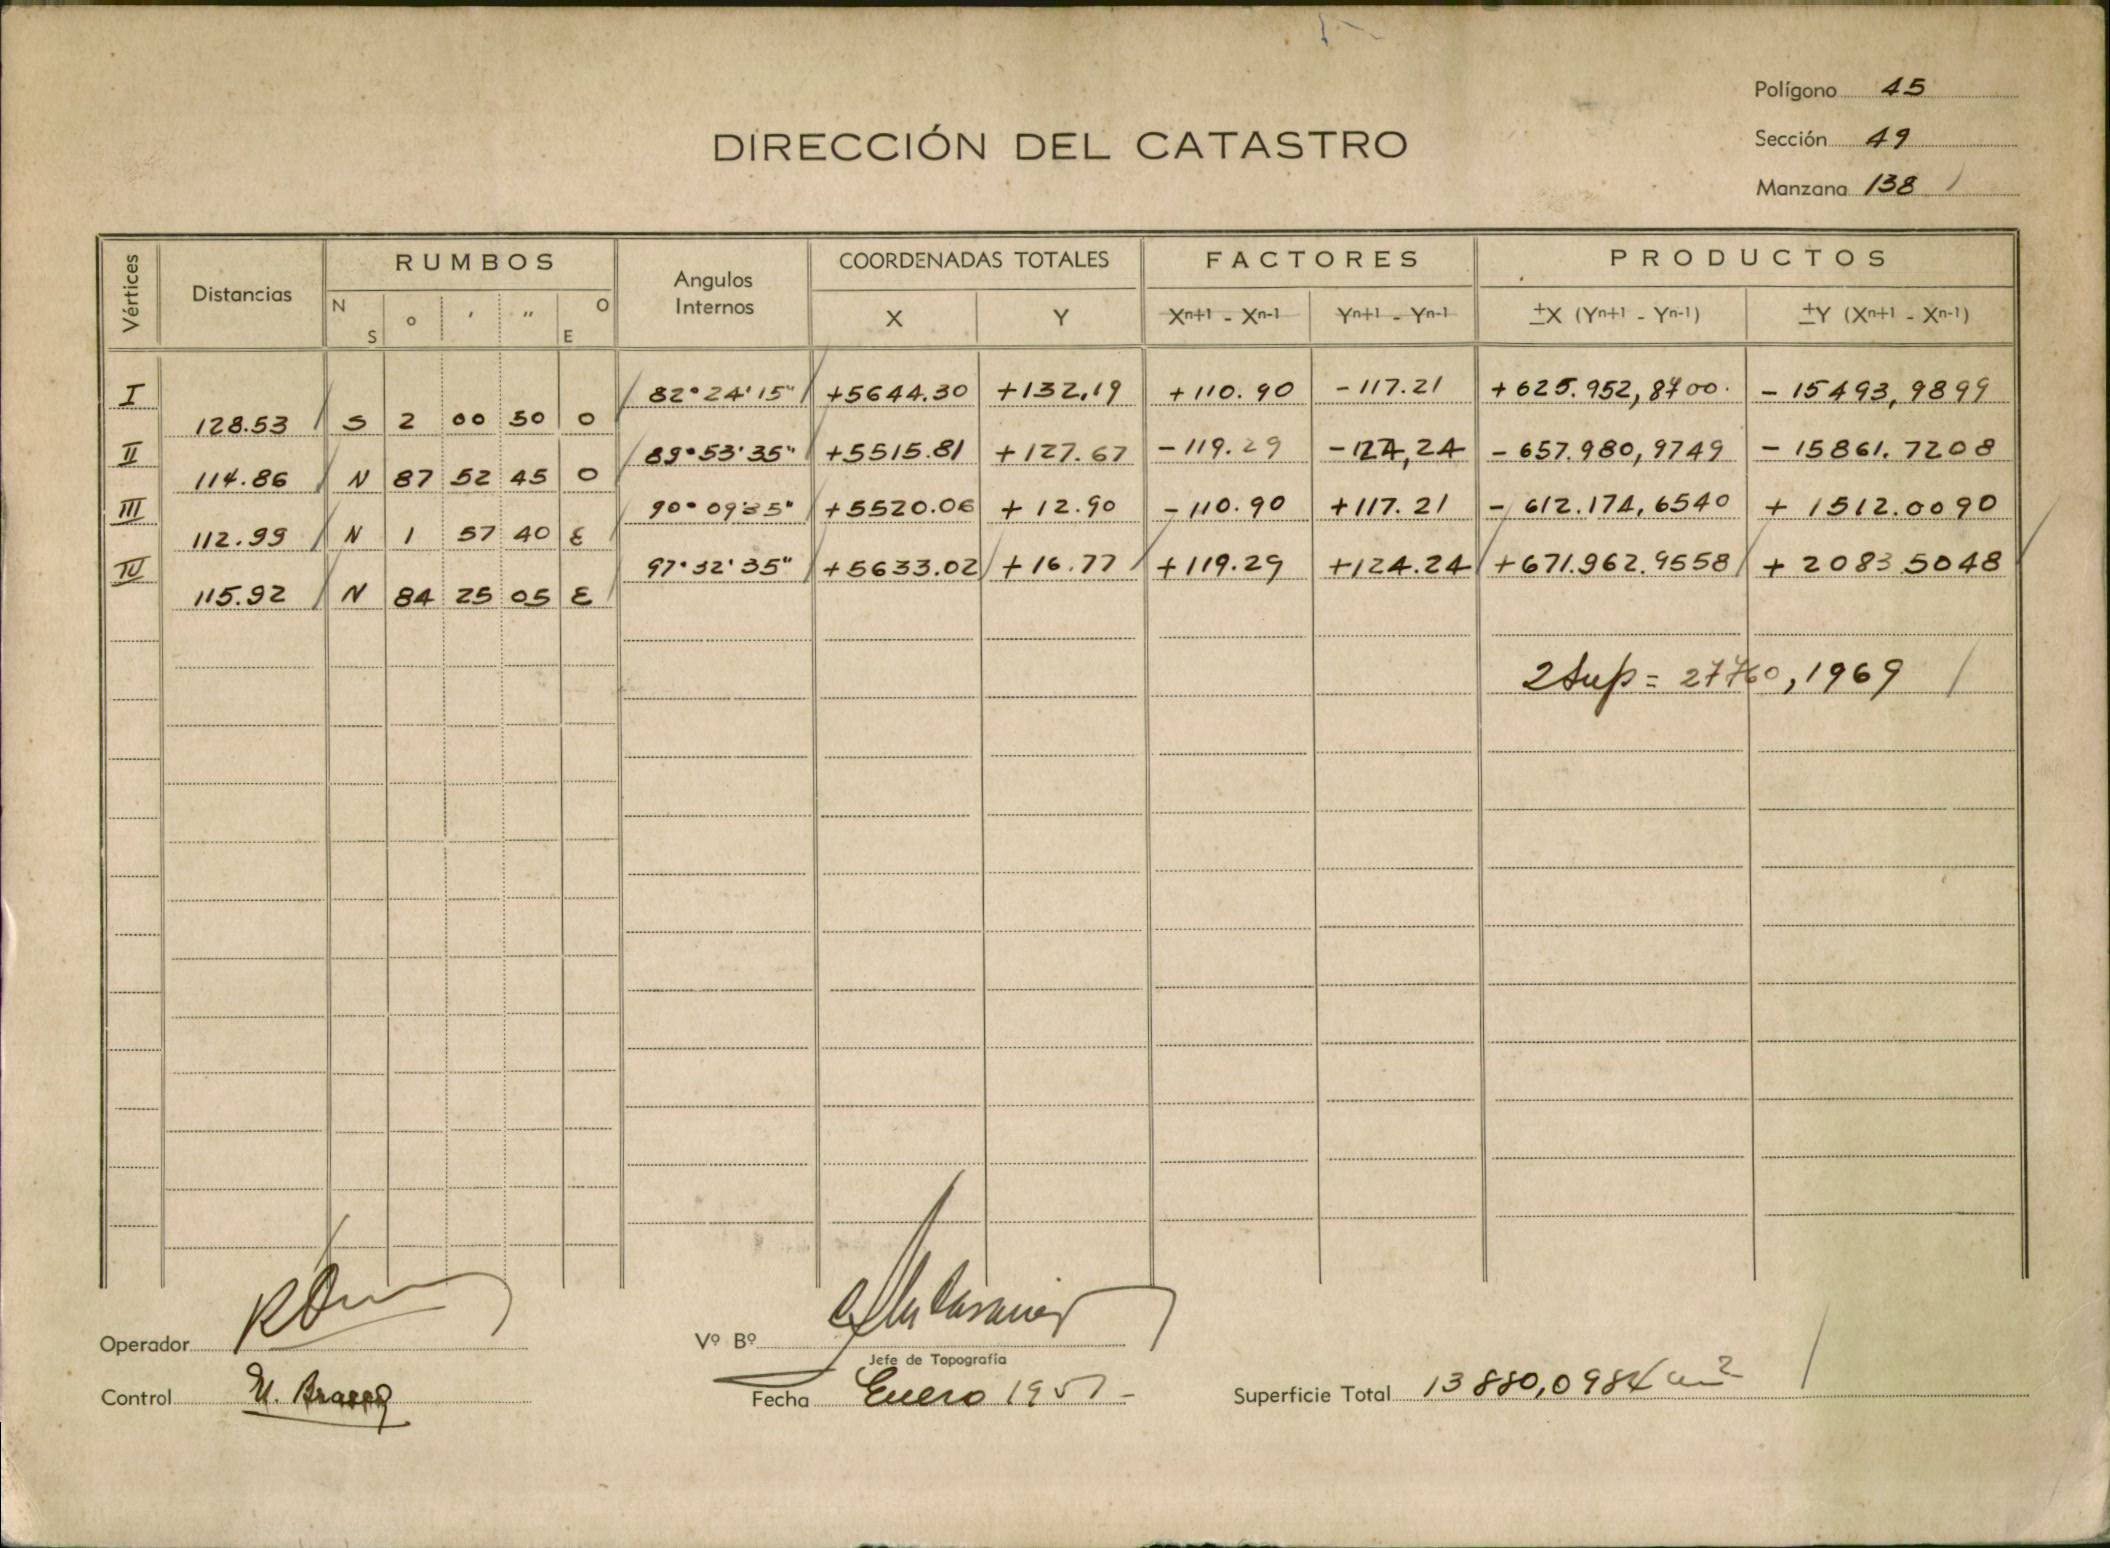 Polígono 45
DIRECCIÓN DEL CATASTRO
Sección 49
Manzana 138
Vértices Distancias RUMBOS Angulos Internos COORDENADAS TOTALES FACTORES PRODUCTOS
N S ° ' " O E X Y Xn+1 - Xn-1 Yn+1 - Yn-1 ±X (Yn+1 - Yn-1) ±Y (Xn+1 - Xn-1)
I 82°24'15" +5644.30 +132,19 +110.90 -117.21 +625.952,8700 - 15493,9899
128.53 S 2 00 50 O
II 89°53'35" +5515.81 +127.67 -119.29 -124,24 - 657.980,9749 - 15861.7208
114.86 N 87 52 45 O
III 90°09'35" +5520.06 + 12.90 -110.90 +117.21 - 612.174,6540 + 1512.0090
112.99 N 1 57 40 E
IV 97°32'35" +5633.02 +16.77 +119.29 +124.24 +671.962.9558 + 2083.5048
115.92 N 84 25 05 E
2Sup = 27760,1969
Operador
Vº Bº
Jefe de Topografía
Control
Fecha Enero 1951-
Superficie Total 13880,0984 m2